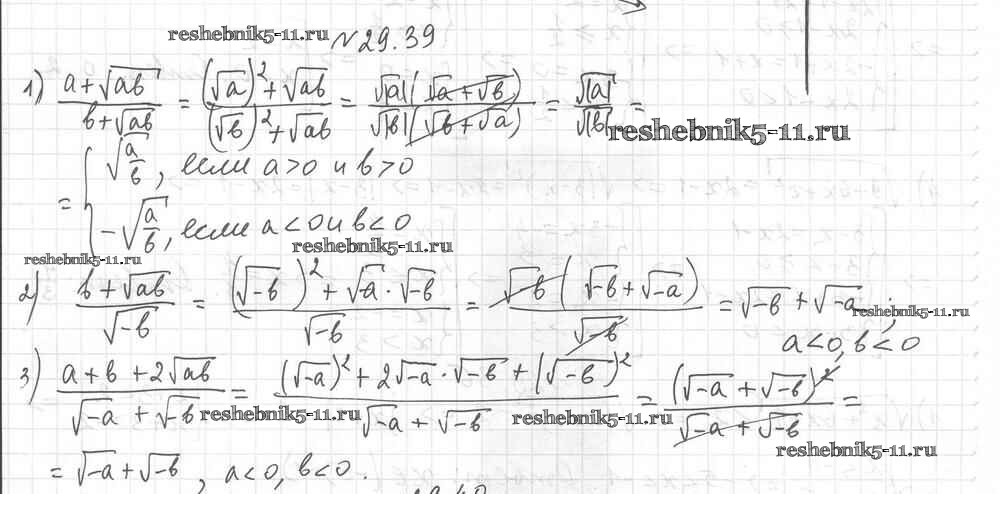 reshebnik5-11.ru №29.39
1) (a+√ab)/(b+√ab) = ((√a)²+√ab)/((√b)²+√ab) = (√|a|(√a+√b))/(√|b|(√b+√a)) = √|a|/√|b| =
reshebnik5-11.ru
= { √(a/b), если a>0 и b>0
-√(a/b), если a<0 и b<0
reshebnik5-11.ru
reshebnik5-11.ru
2) (b+√ab)/√-b = ((√-b)²+√-a·√-b)/√-b = (√-b(√-b+√-a))/√-b = √-b+√-a;
reshebnik5-11.ru
a<0, b<0
3) (a+b+2√ab)/(√-a+√-b) = ((√-a)²+2√-a·√-b+(√-b)²)/(√-a+√-b) = (√-a+√-b)²/(√-a+√-b) =
reshebnik5-11.ru reshebnik5-11.ru
reshebnik5-11.ru
= √-a+√-b, a<0, b<0.